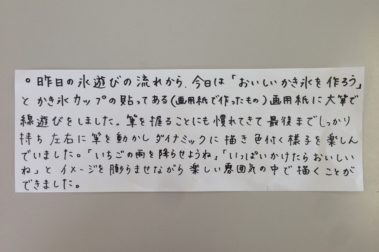 。昨日の氷遊びの流れから、今日は「おいしいかき氷を作ろう」
とかき氷カップの貼ってある(画用紙で作ったもの)画用紙に大筆で
線遊びをしました。筆を握ることにも慣れてきて最後までしっかり
持ち左右に筆を動かしダイナミックに描き色付く様子を楽しん
でいました。「いちごの雨を降らせようね」「いっぱいかけたらおいしい
ね」とイメージを膨らませながら楽しい雰囲気の中で描くことが
できました。